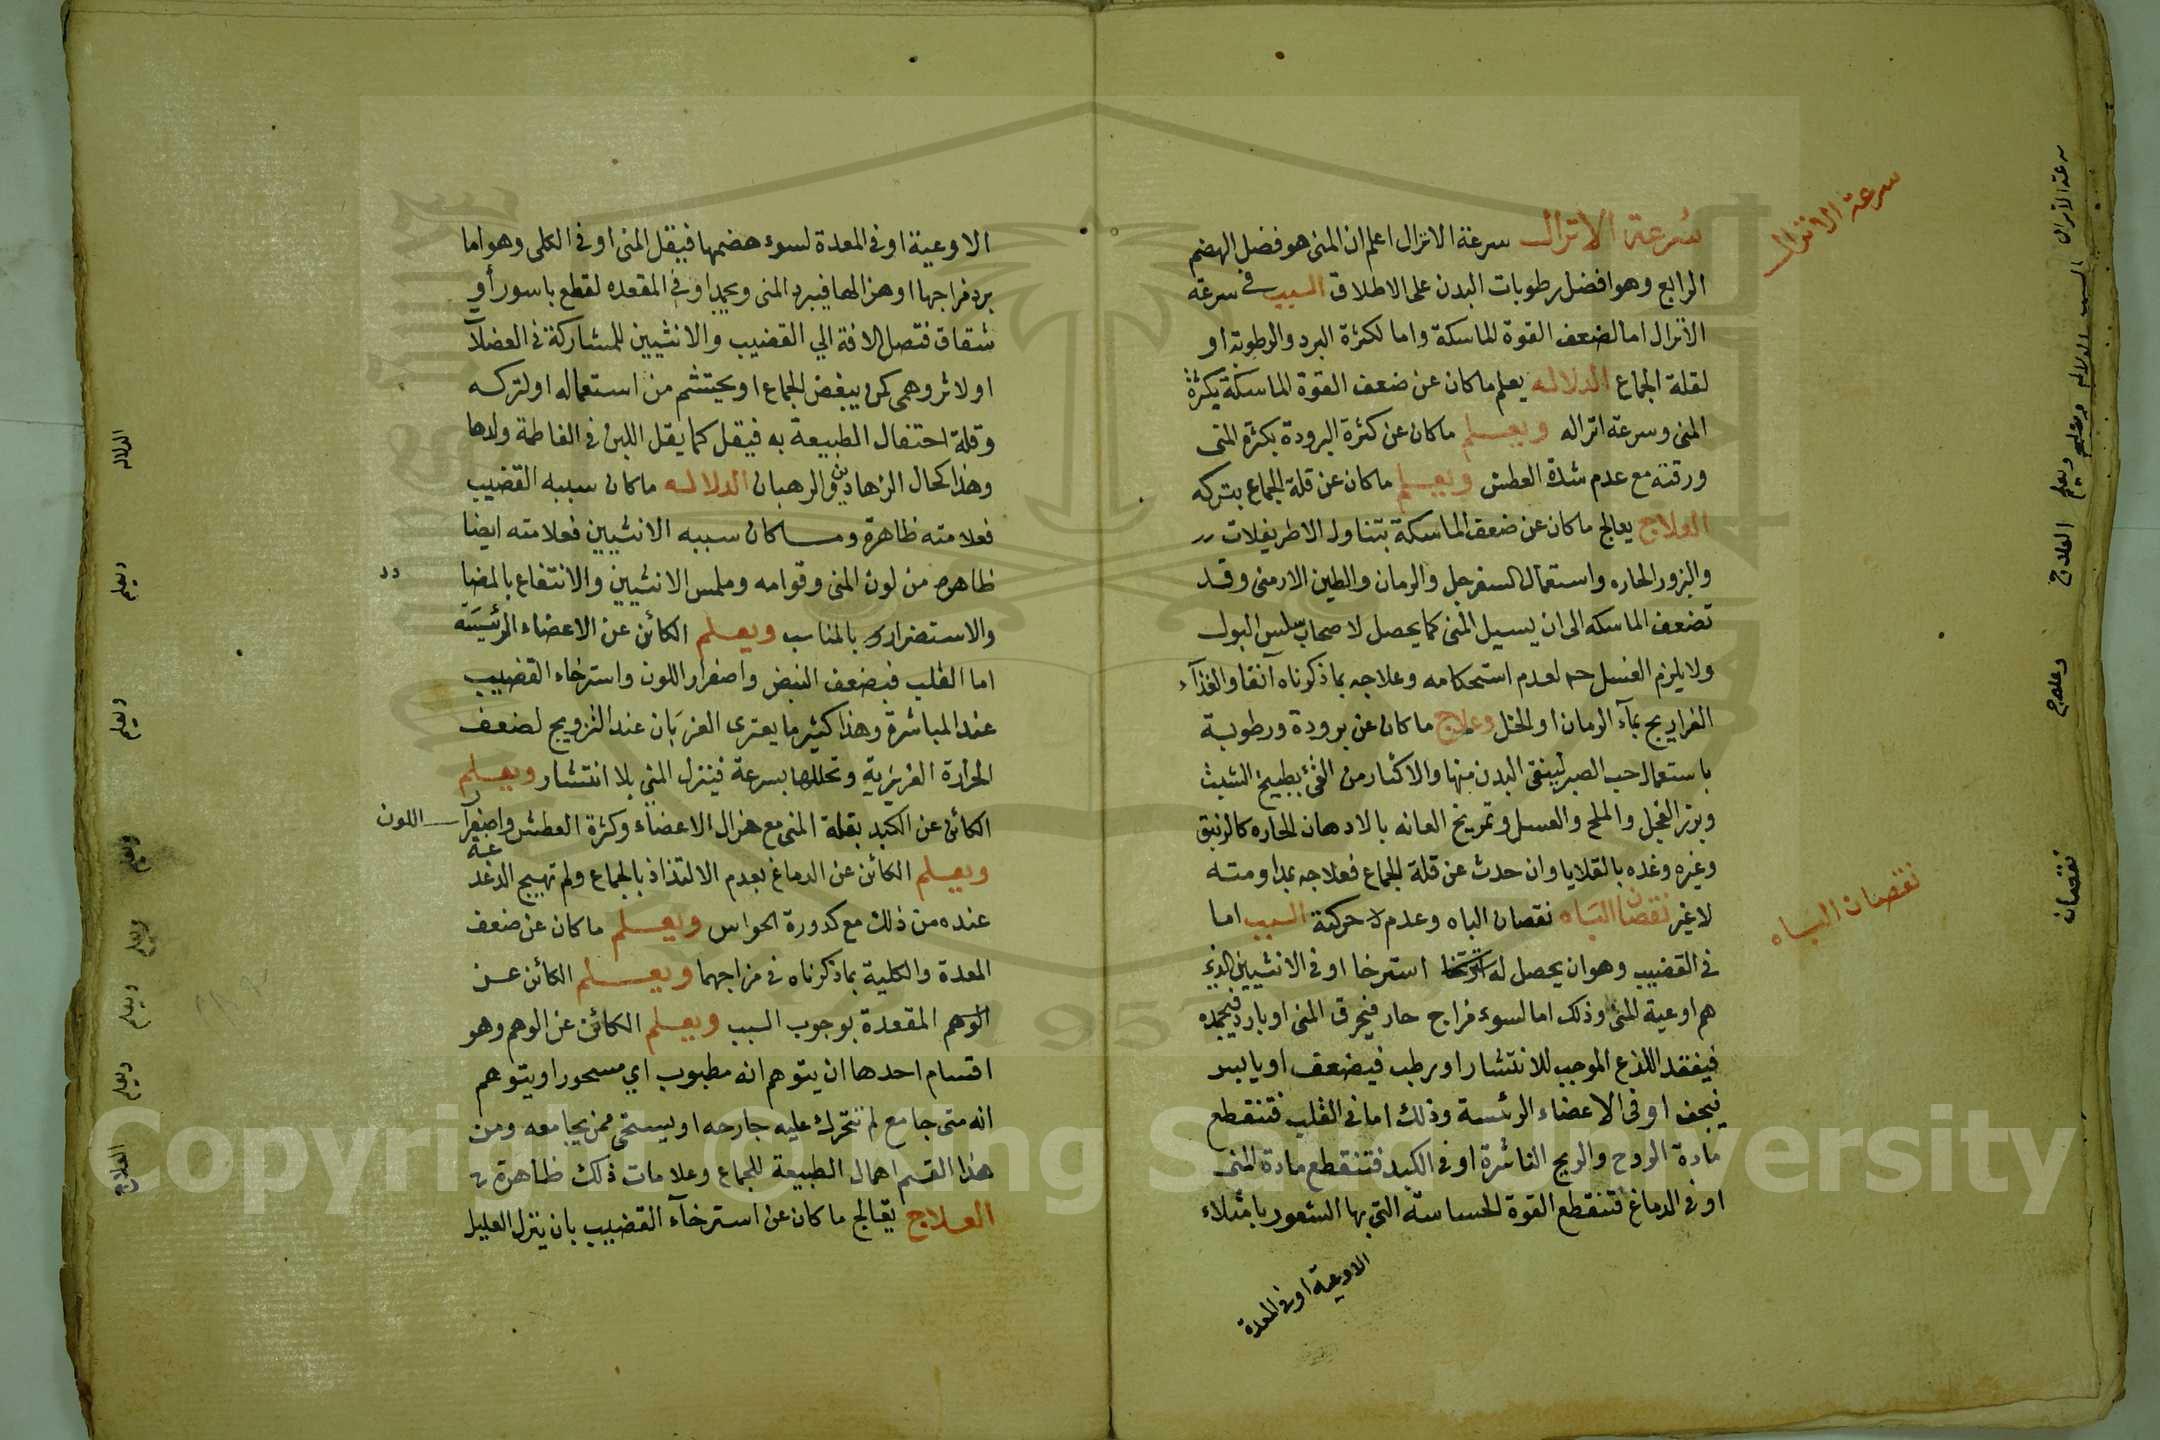 سرعة الانزال
سُرعة الانزال سرعة الانزال اعلم ان المنى هو فضل الهضم
الرابع وهو افضل رطوبات البدن على الاطلاق السبب فى سرعة
الانزال اما لضعف القوة الماسكة واما لكثرة البرد والرطوبة او
لقلة الجماع الدلاله يعلم ما كان عن ضعف القوة الماسكة بكثرة
المنى وسرعة انزاله ويعلم ما كان عن كثرة البرودة بكثرة المنى
ورقته مع عدم شدة العطش ويعلم ما كان عن قلة الجماع بتركه
العلاج يعالج ما كان عن ضعف الماسكة بتناول الاطريفلات
والبزور الحاره واستعمال السفرجل والرمان والطين الارمنى وقد
تضعف الماسكه الى ان يسيل المنى كما يحصل لاصحاب سلس البول
ولا يلزم الغسل ح لعدم استحكامه وعلاجه بما ذكرناه آنفا والغذآء
الفراريج بمآء الرمان او الخل وعلاج ما كان عن برودة ورطوبة
باستعمال حب الصبر لينقى البدن منها والاكثار من القئ بطبيخ الشبث
وبزر الفجل والملح والعسل وتمريخ العانه بالادهان الحاره كالزنبق
وغيره وغذه بالقلايا وان حدث عن قلة الجماع فعلاجه بمداومته
لا غير نقصان البَاه نقصان الباه وعدم لا حركية السبب اما
نقصان البَاه
فى القضيب وهو ان يحصل له استرخا او فى الانثيين الذى
هم اوعية المنى وذلك اما لسوء مزاج حار فيحرق المنى او بارد فيجمده
فيفقد اللذع الموجب للانتشار او رطب فيضعف او يابس
فيجف او فى الاعضاء الرئسة وذلك اما فى القلب فتنقطع
مادة الروح والريح الناشرة او فى الكبد فتنقطع مادة المنى
او فى الدماغ فتنقطع القوة الحساسة التى بها الشعور بامتلاء
الاوعية او فى المعدة
سرعة الانزال السبب الدلاله ويعلم ويعلم العلاج وعلاج نقصان
الاوعية او فى المعدة لسوء هضمها فيقل المنى او فى الكلى وهو اما
برد مزاجها او هزالها فيبرد المنى ويجمد او فى المقعده لقطع باسور أو
شقاق فتصل الافة الي القضيب والانثيين للمشاركة فى العضلآ
او لاثر وهمى كمن يبغض الجماع او يحتشم من استعماله او لتركه
وقلة احتفال الطبيعة به فيقل كما يقل اللبن فى الفاطمة ولدها
وهذا كحال الزهادين والرهبان الدلاله ما كان سببه القضيب
فعلامته ظاهرة وما كان سببه الانثيين فعلامته ايضا
ظاهره من لون المنى وقوامه وملمس الانثيين والانتفاع بالمضا
دد
والاستضرار بالمناسب ويعلم الكائن عن الاعضاء الرئيسَة
اما القلب فبضعف النبض واصفرار اللون واسترخاء القضيب
عند المباشرة وهذا كثير ما يعترى العزبَان عند التزويج لضعف
الحرارة الغريزية وتحللها بسرعة فينزل المني بلا انتشار ويعلم
الكائن عن الكبد بقلة المنى مع هزال الاعضاء وكثرة العطش واصفرار اللون
ويعلم الكائن عن الدماغ بعدم الالتذاذ بالجماع ولم تهيج الدغدغة
عنده من ذلك مع كدورة الحواس ويعلم ما كان عن ضعف
المعدة والكلية بما ذكرناه فى مزاجهما ويعلم الكائن عن
الوهم المقعدة بوجوب السبب ويعلم الكائن عن الوهم وهو
اقسام احدها ان يتوهم انه مطبوب اي مسحور او يتوهم
انه متى جامع لم تتحرك عليه جارحه او يستحى ممن يجامعه ومن
هذا القسم اهمال الطبيعة للجماع وعلامات ذلك ظاهرة
العلاج يعَالج ما كان عن استرخآء القضيب بان ينزل العليل
الدلاله
ويعلم
ويعلم
ويعلم
ويعلم
ويعلم
ويعلم
العلاج
Copyright © King Saud University
1957